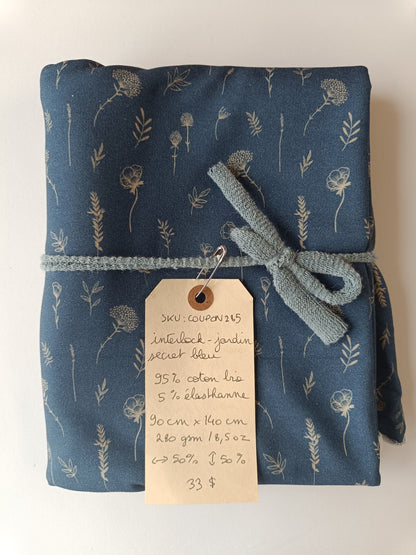 SKU: COUPON285
interlock - jardin
secret bleu
95% coton bio
5% élasthanne
90 cm x 140 cm
280 gsm / 8,5 oz
↔ 50% ↕ 50%
33 $